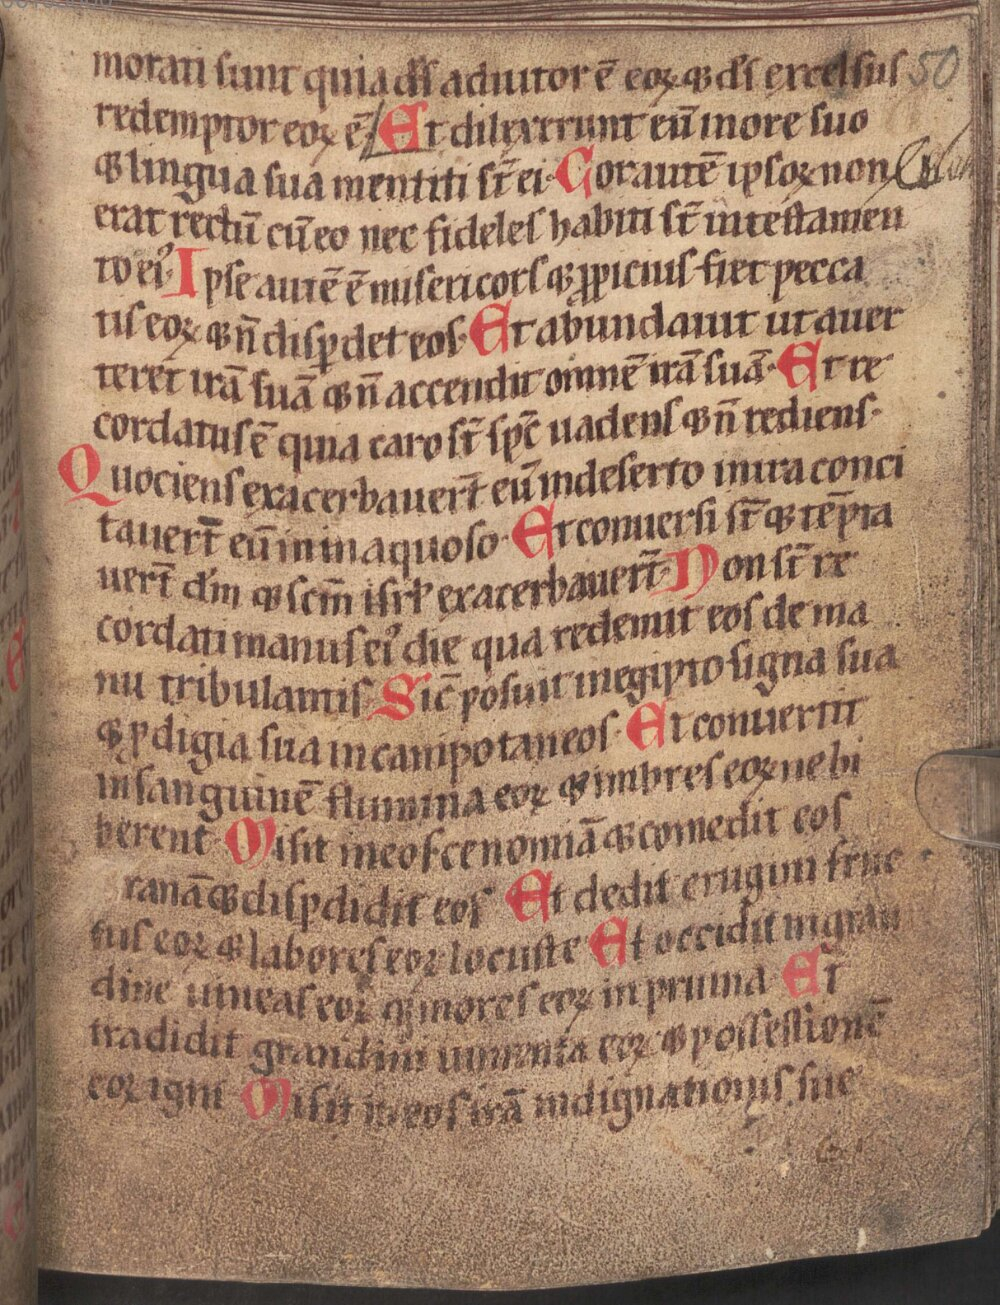 morati sunt quia ds̄ adiutor ē eoꝝ ꝗ ds̄ excelsus 50
redemptor eoꝝ ē Et dilexerunt eū in ore suo
ꝗ lingua sua mentiti st̄ ei· Cor autē ipsoꝝ non
erat rectū cū eo nec fideles habiti st̄ in testamen
to eiꝰ· Ipse autē ē misericors ꝗ ꝓpicius fiet pecca
tis eoꝝ ꝗ n̄ disꝑdet eos· Et abundauit ut auer
teret irā suā ꝗ n̄ accendit omnē irā suā· Et re
cordatus ē quia caro st̄ spc̄ uadens ꝗ n̄ rediens·
Quociens exacerbauert̄ eū in deserto in ira conci
tauert̄ eū in inaquoso· Et conuersi st̄ ꝗ tēpta
uert̄ dm̄ ꝗ scm̄ isrl̄ exacerbauert̄· Non st̄ re
cordati manus eiꝰ die qua redemit eos de ma
nu tribulantis Sic̄ posuit in egipto signa sua
ꝗ ꝓdigia sua in campo taneos· Et conuertit
in sanguinē flumina eoꝝ ꝗ imbres eoꝝ ne bi
berent Misit in eos cenomiā ꝗ comedit eos
ranā ꝗ disꝑdidit eos Et dedit erugini fruc
tus eoꝝ ꝗ labores eoꝝ locuste Et occidit in gran
dine uineas eoꝝ ꝗ mores eoꝝ in pruina Et
tradidit grandini iumenta eoꝝ ꝗ possessionē
eoꝝ igni Misit in eos irā indignationis sue